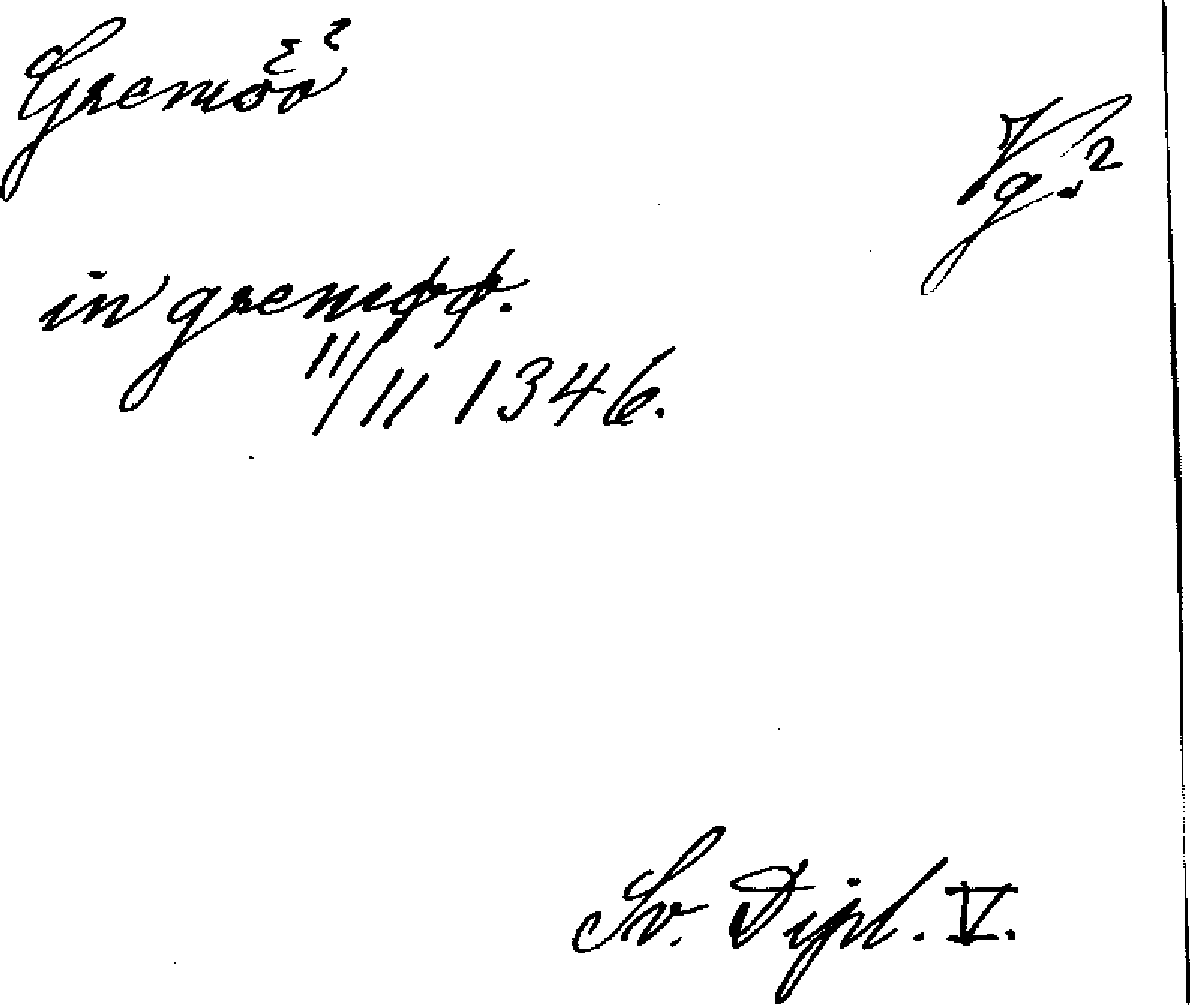 Gremöö
Vg.?
in gremøø.
11/11 1346.
Sv. Dipl. V.